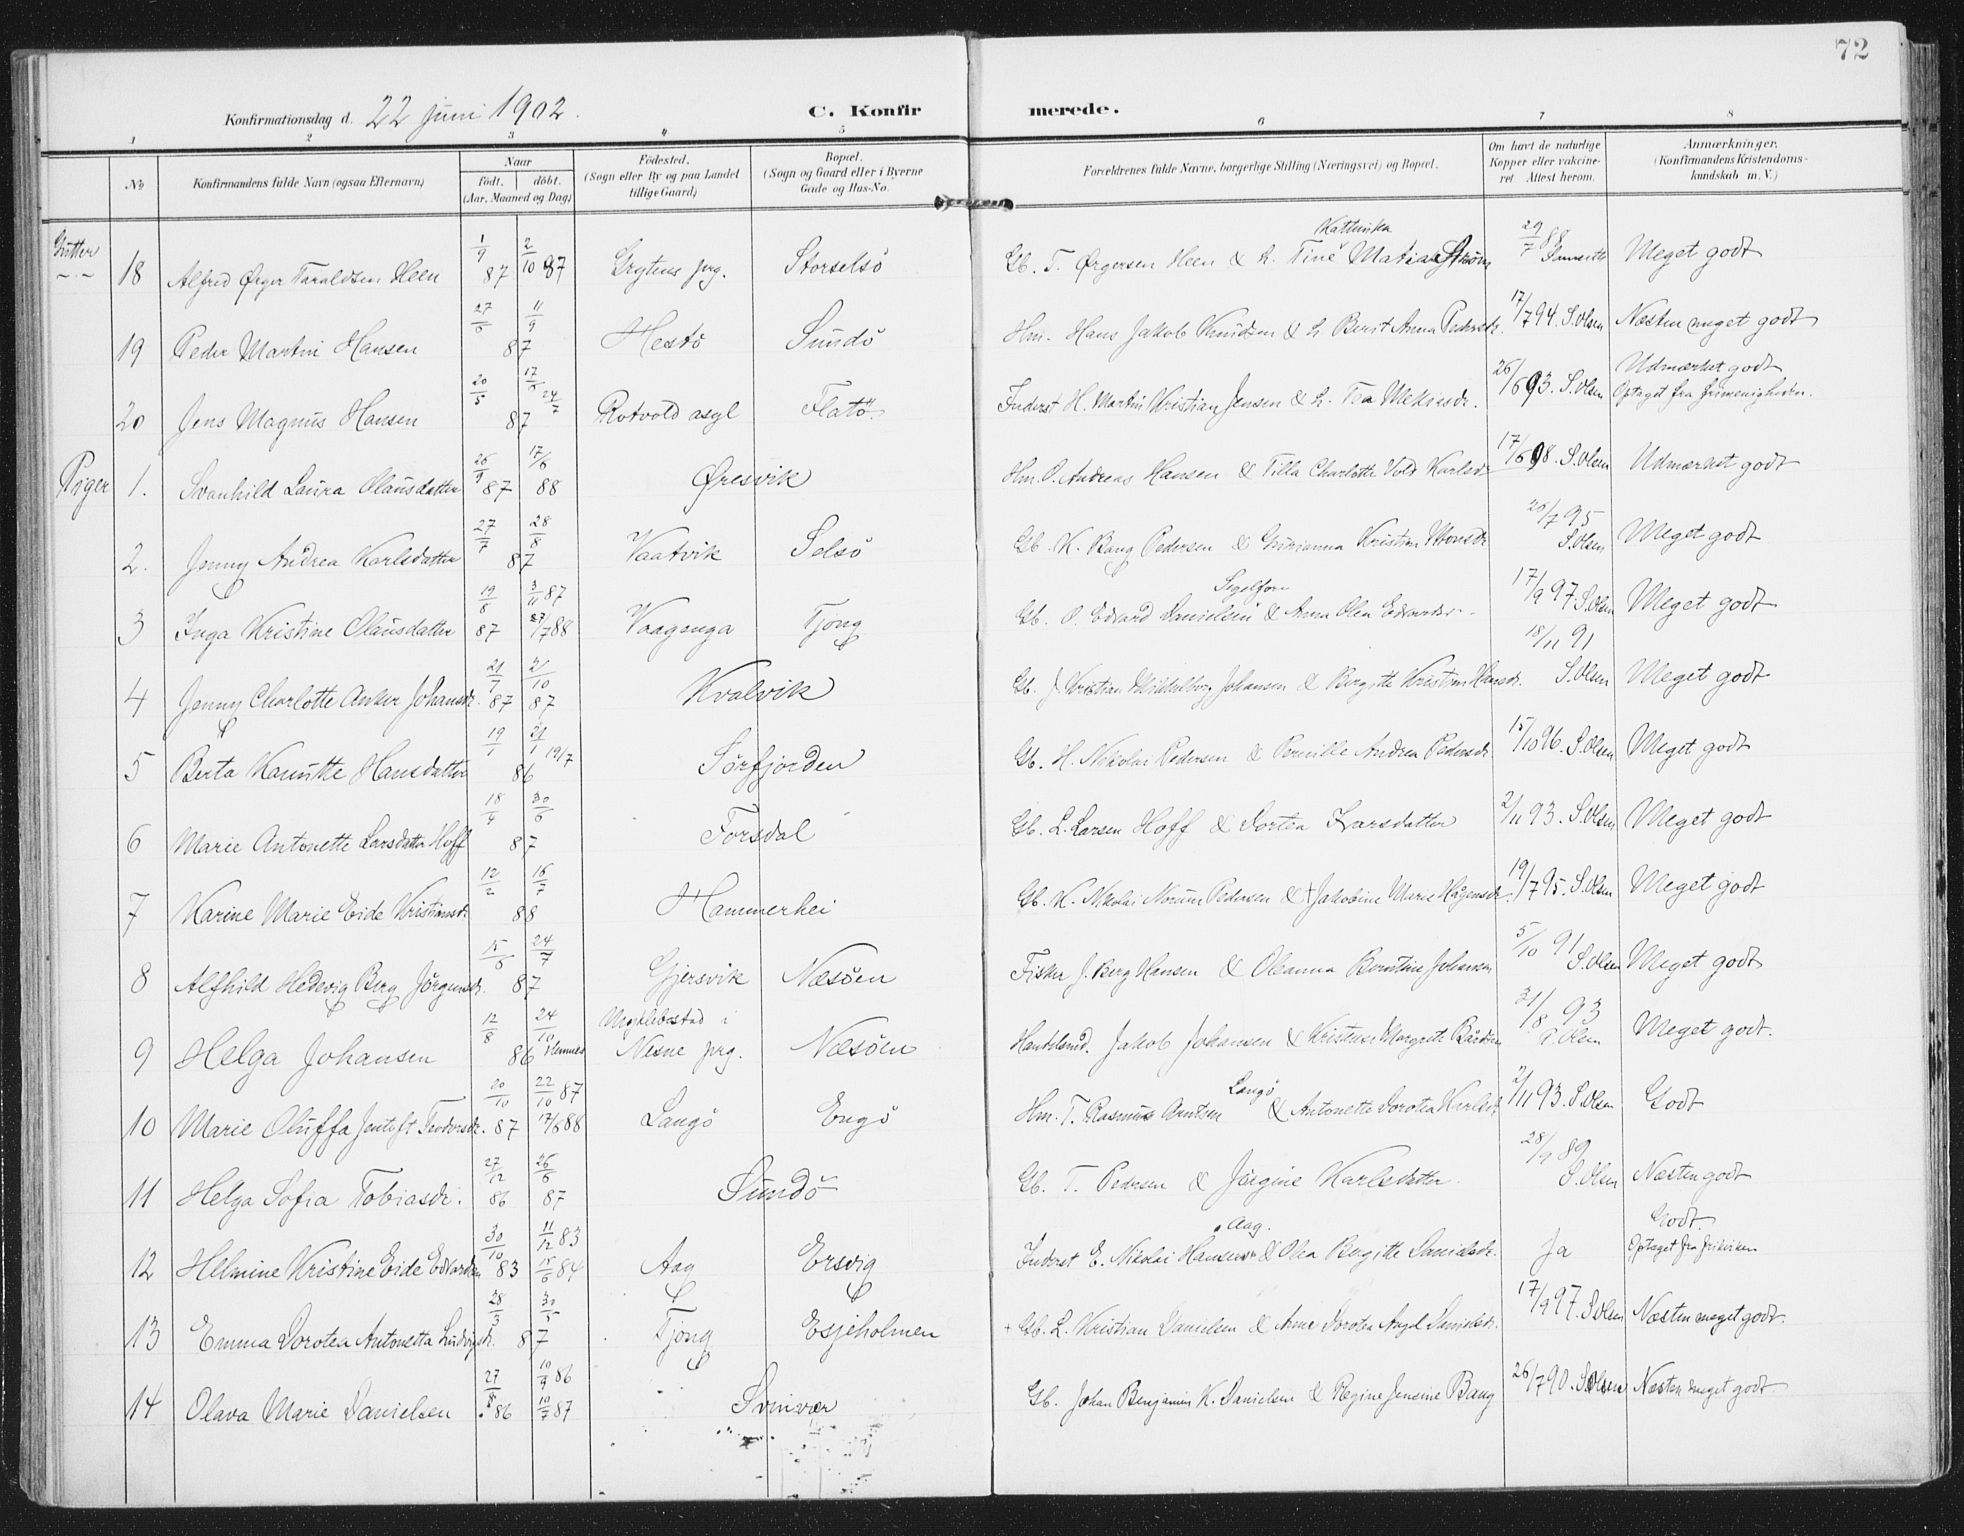 72
Konfirmationsdag d. 22 juni 1902.
C. Konfirmerede.
1 2 3 4 5 6 7 8
No
Konfirmandens fulde Navn (ogsaa Efternavn)
Naar
Födt. döbt.
(Aar, Maaned og Dag)
Födested.
(Sogn eller By og paa Landet
tillige Gaard)
Bopæl.
(Sogn og Gaard eller i Byerne
Gade og Hus-No.
Forældrenes fulde Navne, borgerlige Stilling (Næringsvei) og Bopæl.
Om havt de naturlige
Kopper eller vakcine-
ret Attest herom.
Anmærkninger,
(Konfirmandens Kristendoms-
kundskab m. V.)
Gutter
18 Alfred Ørger Taraldsen Heen 1/9 87 2/10 87 Grytens prg. Storselsö Gb. T. Ørgersen Heen & h. Tine Kathinka Matia Ström 29/7 88 Meget godt
19 Peder Martin Hansen 27/6 11/9 87 Hestö Sundö Hm. Hans Jakob Knudsen & h Berit Anna Pedersdr. 17/7 94. S. Olsen Næsten meget godt
20 Jens Magnus Hansen 20/5 17/6 24/7 87 Rotvold asyl Flatö Inderst H. Martin Kristian Jensen & h. Tea Mekiasdr. 26/6 93. S. Olsen Udmærket godt
Optaget fra frimenigheden.
Piger
1. Svanhild Laura Olausdatter 26/9 87 17/6 88 Øresvik Hm. O. Andreas Hansen & Tilla Charlotte Vold Karlsdr 17/6 98. S. Olsen Udmærket godt
2. Jenny Andrea Karlsdatter 27/7 28/8 87 Vaatvik Selsö Gb. K. Bang Pedersen & Kristine Monsdr 20/7 95 S. Olsen Meget godt
3 Inga Kristine Olausdatter 19/8 87 3/11 87 27/7 88 Vaagenga Tjong Gb. O. Edvard Danielsen Segelfore & Anna Olea Edvardsdr. 17/9 97. S. Olsen Meget godt
4 Jenny Charlotte Anker Johansdr. 21/7 87 21/10 87 Kvalvik Gb. J. Kristian Mikkelborg Johansen & Bergitte Kristine Hansdr. 18/11 91 S. Olsen Meget godt
5 Berta Kanutte Hansdatter 19/1 21/1 19/7 86 Sörfjorden Gb. H. Nikolai Pedersen & Pernille Andrea Pedersdr 15/10 96. S. Olsen Meget godt
6 Marie Antonette Larsdatter Hoff 18/4 30/6 87 Forsdal Gb. L. Larsen Hoff & Dortea Ivarsdatter 2/11 93. S. Olsen Meget godt
7 Karine Marie Eide Kristiansdr 12/2 16/7 88 Hammerhei Gb. K. Nikolai Norum Pedersen & † Jakobine Marie Hågensdr. 19/7 95. S. Olsen Meget godt
8 Alfhild Hedevig Berg Jörgensdr. 15/6 24/7 87 Gjersvik Næsöen Fisker J. Berg Hansen & Oleanna Berntine Johansen 5/10 91 S. Olsen Meget godt
9 Helga Johansen 12/8 24/10 86 Hemnes i Nesne prg. Næsöen Handelsmd. Jakob Johansen & Kristense Margrete 31/8 93 S. Olsen Meget godt.
10 Marie Oluffa Jentoft Teodorsdr. 20/10 87 22/10 87 17/6 88 Langö Engö Hm. T. Rasmus Arntsen Langö & Antonette Dorotea Karlsdr 2/11 93. S. Olsen Godt
11 Helga Sofia Tobiasdr. 27/12 86 26/6 87 Sundö Gb. T. Pedersen & Jörgine Karlsdatter. 28/9 89 S. Olsen Næsten godt
12 Helmine Kristine Eide Edvardsen 30/10 83 11/12 83 15/6 84 Aag Ersvig Inderst E. Nikolai Hansen Aag. & Olea Bergitte Danielsdr. Ja Godt.
Optaget fra frikirken
13 Emma Dorotea Antonetta Ludvigsdr. 28/3 30/5 87 Tjong Esjeholmen + Gb. L. Kristian Danielsen & Anne Dorotea Angel Danielsdr. 17/9 97. S. Olsen Næsten meget godt.
14 Olava Marie Danielsen 27/8 86 10/9 86 10/7 87 Svinvær Gb. Johan Benjamin K. Danielsen & Regine Jensine Bang 26/7 90. S. Olsen Næsten meget godt